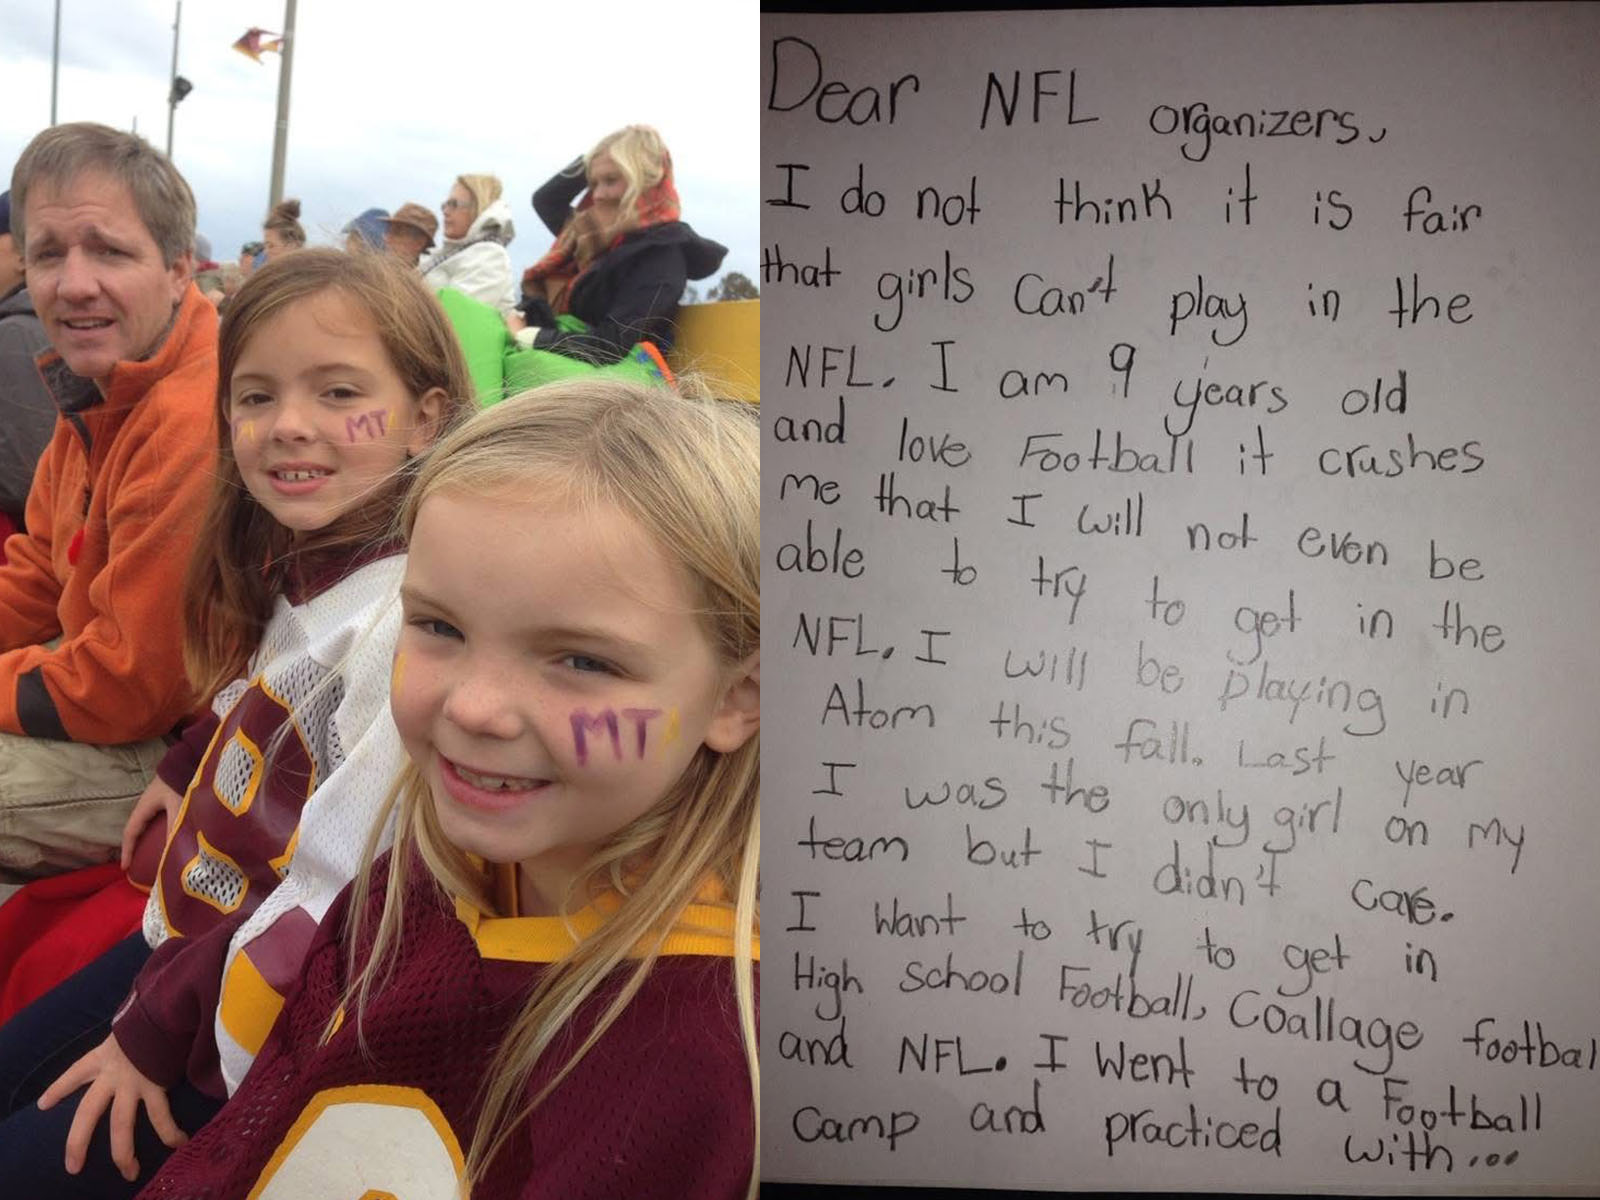 MT
MT
Dear NFL organizers,
I do not think it is fair
that girls can't play in the
NFL. I am 9 years old
and love Football it crushes
me that I will not even be
able to try to get in the
NFL. I will be playing in
Atom this fall. Last year
I was the only girl on my
team but I didn't care.
I want to try to get in
High school Football, Coallage footbal
and NFL. I went to a Football
camp and practiced with...